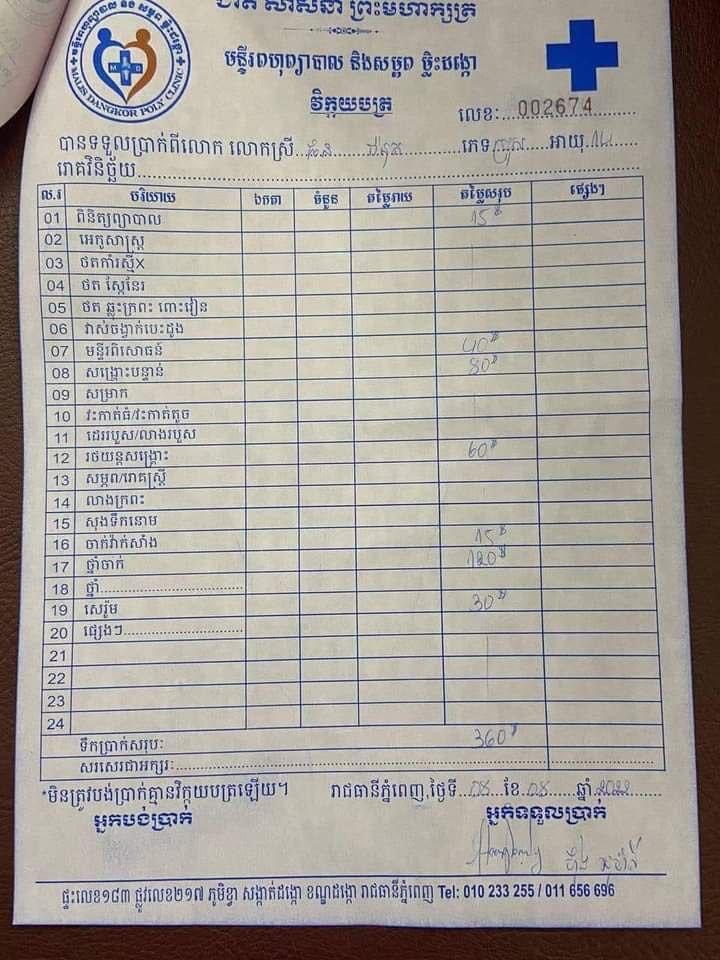 ជាតិ សាសនា ព្រះមហាក្សត្រ
មន្ទីរពហុព្យាបាល និងសម្ភព ម្លិះដង្កោ
MALIS DANGKOR POLY CLINIC
វិក្កយបត្រ
លេខៈ 002674
បានទទួលប្រាក់ពីលោក លោកស្រី ភេទ ប្រុស អាយុ
រោគវិនិច្ឆ័យ
ល.រ បរិយាយ ឯកតា ចំនួន តម្លៃរាយ តម្លៃសរុប ផ្សេងៗ
01 ពិនិត្យព្យាបាល 15$
02 អេកូសាស្ត្រ
03 ថតកាំរស្មីX
04 ថត ស្កែនែរ
05 ថត ឆ្លុះក្រពះ ពោះវៀន
06 វាស់ចង្វាក់បេះដូង
07 មន្ទីរពិសោធន៍ 40$
08 សង្គ្រោះបន្ទាន់ 80$
09 សម្រាក
10 វះកាត់ធំ/វះកាត់តូច
11 ដេររបួស/លាងរបួស
12 រថយន្តសង្គ្រោះ 60$
13 សម្ភព/រោគស្ត្រី
14 លាងក្រពះ
15 សុងទឹកនោម
16 ចាក់វ៉ាក់សាំង 15$
17 ថ្នាំចាក់ 120$
18 ថ្នាំ
19 សេរ៉ូម 30$
20 ផ្សេងៗ
21
22
23
24
ទឹកប្រាក់សរុបៈ 360$
សរសេរជាអក្សរៈ
*មិនត្រូវបង់ប្រាក់គ្មានវិក្កយបត្រឡើយ។ រាជធានីភ្នំពេញ,ថ្ងៃទី 08 ខែ 08 ឆ្នាំ 2022
អ្នកបង់ប្រាក់ អ្នកទទួលប្រាក់
ផ្ទះលេខ១៨៣ ផ្លូវលេខ២១៧ ភូមិខ្វា សង្កាត់ដង្កោ ខណ្ឌដង្កោ រាជធានីភ្នំពេញ Tel: 010 233 255 / 011 656 696